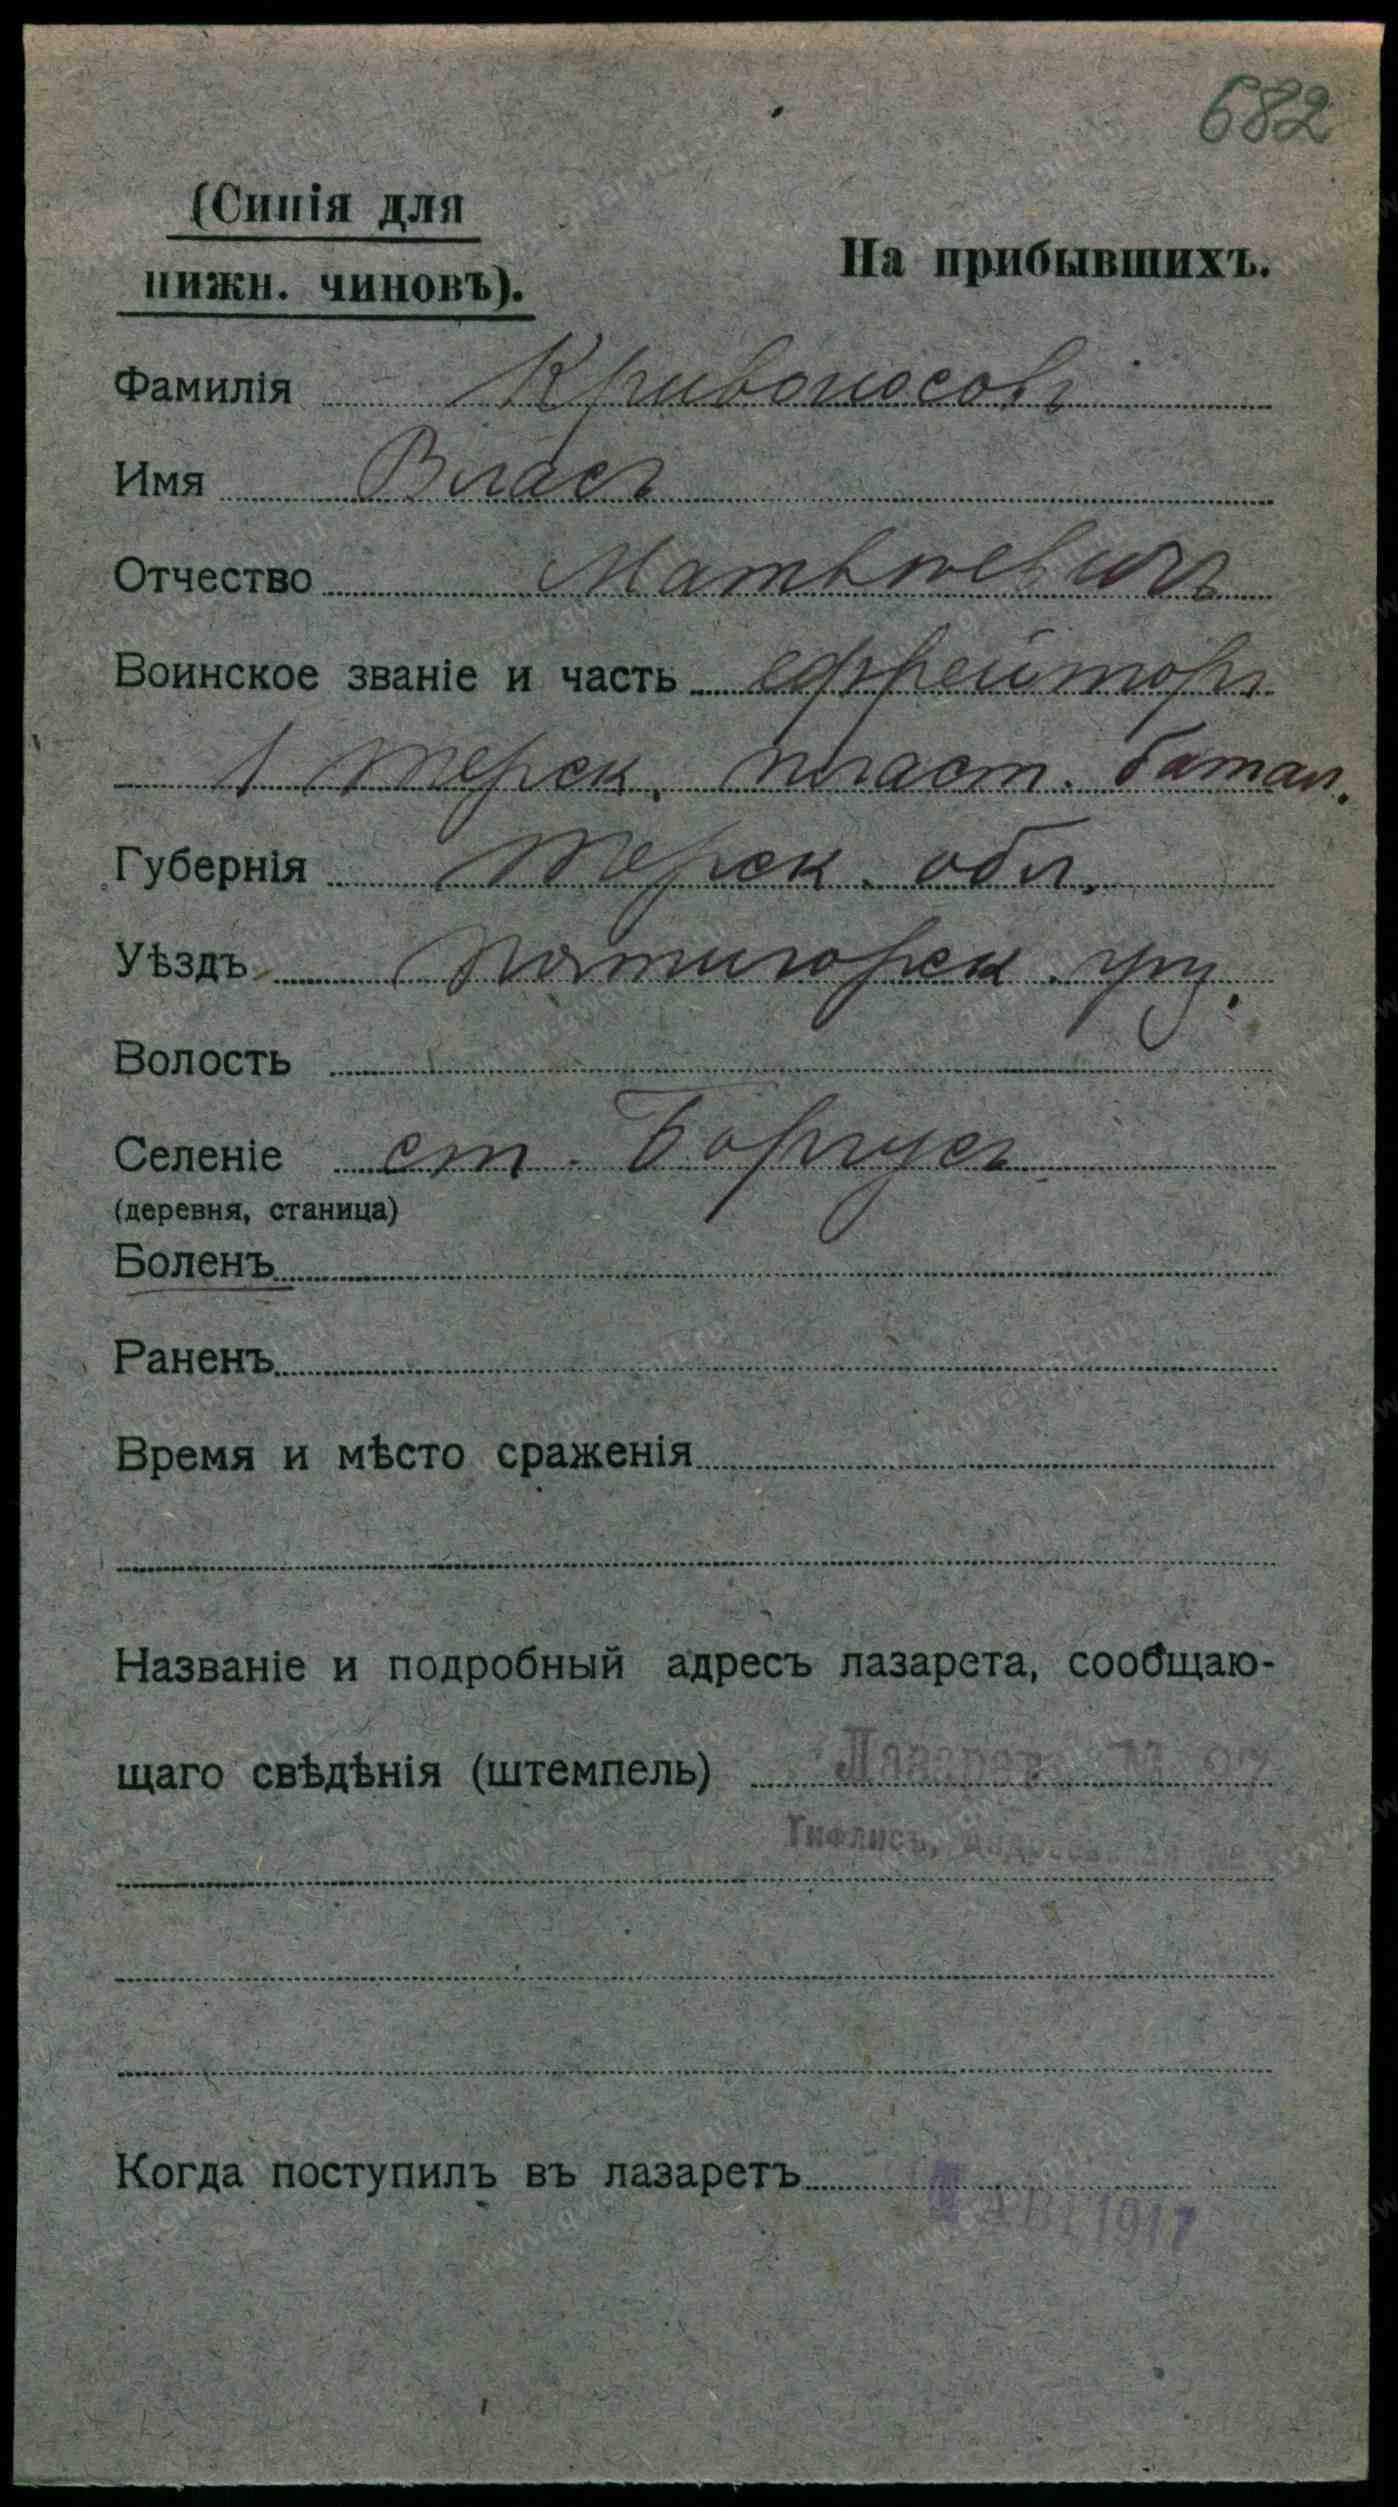 682
(Синія для
нижн. чиновъ).
На прибывшихъ.
Фамилія Кривоносовъ
Имя Власъ
Отчество Матвѣевичъ
Воинское званіе и часть ефрейторъ
1 Терск. пласт. батал.
Губернія Терск. обл.
Уѣздъ Пятигорск.
Волость
Селеніе ст. Боргусъ
(деревня, станица)
Боленъ
Раненъ
Время и мѣсто сраженія
Названіе и подробный адресъ лазарета, сообщаю-
щаго свѣдѣнія (штемпель) Лазаретъ №
Тифлисъ,
Когда поступилъ въ лазаретъ
АВГ 1917